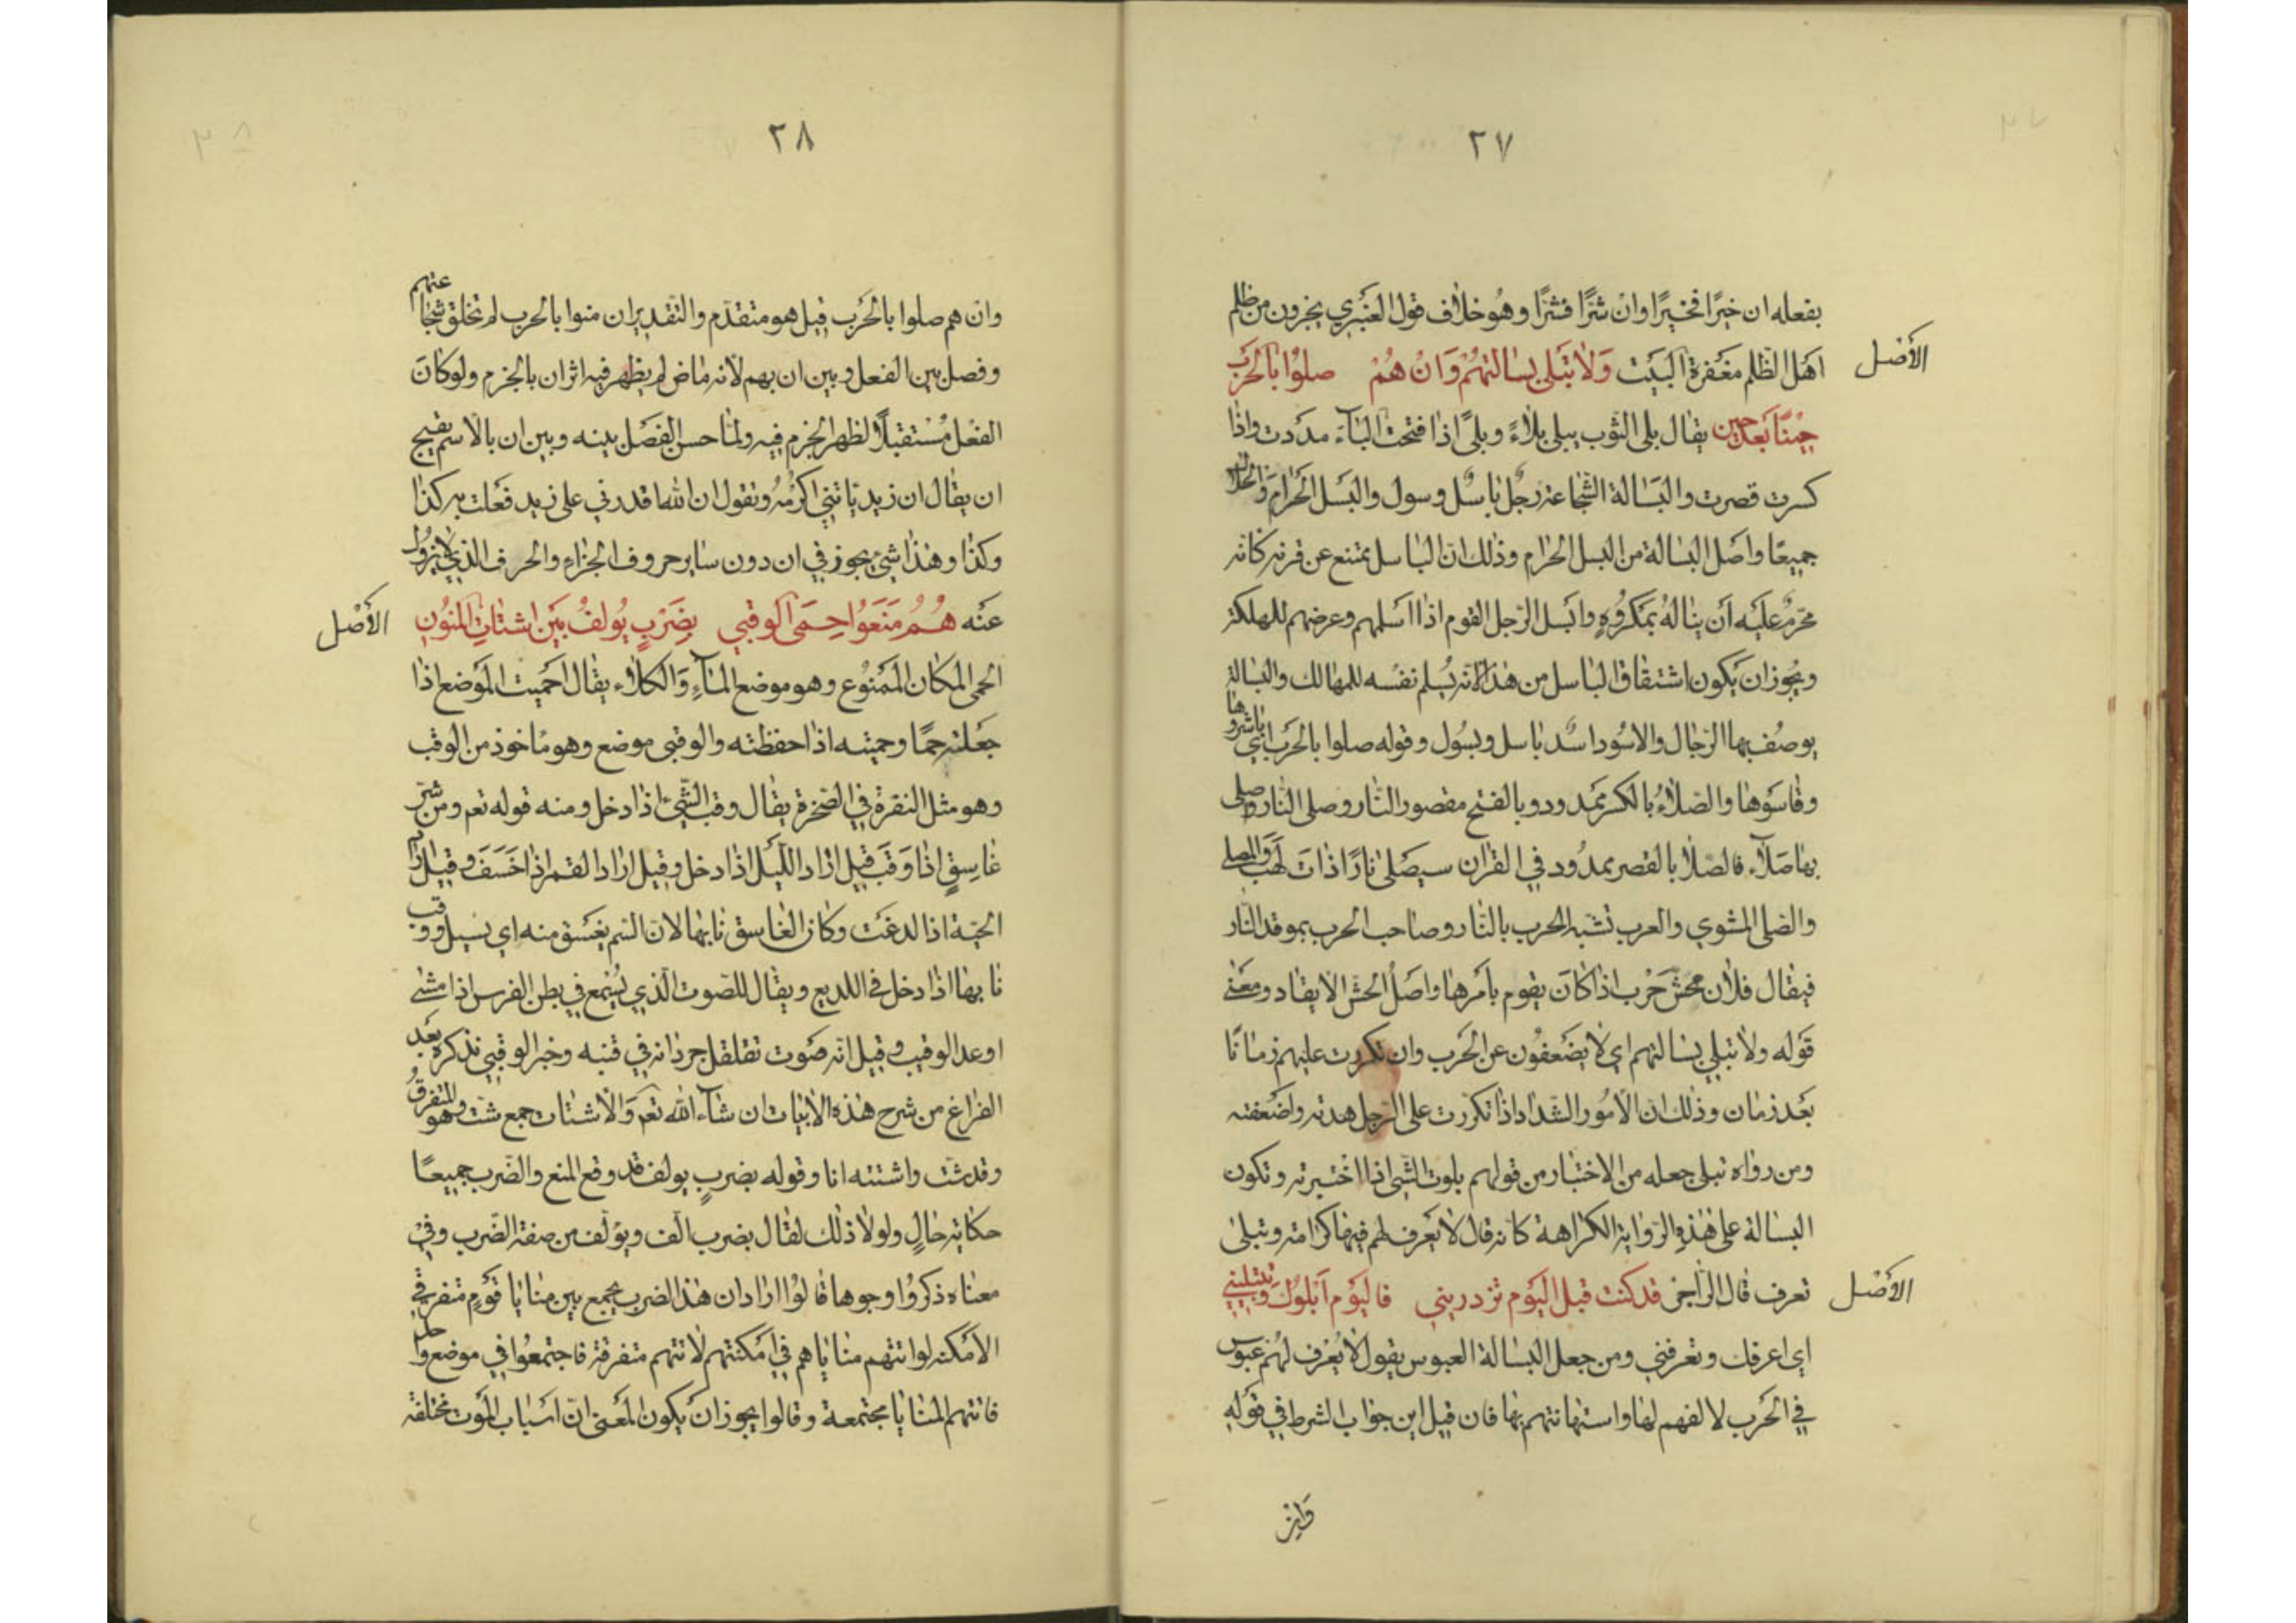 ٢٧
بفعله ان خيرًا فخيرًا وانْ شرًّا فشرًّا وهُو خلاف قول العنبري يجزون من ظلم
الأصْل
اهَل الظّلم مغفرة البَيت وَلَا تَبلى بسَالتهُمْ وَانْ هُمْ صلوْا بالحَرَب
حِينًا بَعَد حين يقال بلى الثوب يبلى بلاءً وبلىً اذا فتحت البَآءَ مدَدت واذا
كسرت قصرت والبَسَالة الشّجاعة رجُل باسْل وبسول والبَسَل الحَرَام وَالحَلال
جميعًا واصَل البسَالة من البسل الحرَام وذلك انّ الباسل يمتنع عن قرنه كانّه
محرّم عليَه أن ينالهُ بمَكرُوُهٍ وابَسل الرّجل القوم اذا اسَلمهم وعرضهم للهلكة
ويجُوز ان يَكون اشتقاق الباسل من هذا لانّه يُسلم نفسْه للمهالك والبَسالة
يوصُف بها الرّجال والاسُود اسُد باسل وبسُول وقوله صلوا بالحَرَب اي باشروها
وقاسَوها والصّلاءُ بالكسر ممَدودو بالفتح مقصور النّار وصلى النّار وصلى
بهَا صَلآء فالصّلا بالقصر ممدُود في القرَان سيصَلى نارًا ذات لهَب والمصلى
والصّلى المشوي والعرب تشبّه الحرب بالنّار وصاحب الحرب بموقد النّار
فيقال فلان محشّ حَرْب اذا كانَ يقوم بأمَرها واصَلُ الحشّ الايقاد ومعَنى
قوَله ولا تبلى بسَالتهم اي لا يضَعفوُن عن الحَرب وان تكررت عليهم زمانًا
بعَد زمَان وذلك انّ الأمُور الشّداد اذا تكرّرت على الرّجل هدته واضَعفته
ومن رواه تبلى جعله من الاختبار من قولهم بلوت الشّي اذا اختبرته وتكون
البسَالة على هٰذهِ الرّواية الكرَاهة كانّه قال لا يَعرف لهم فيها كرَامة وتبلى
الأصْل
تعرف قال الرّاجز قد كنت قبل اليَوم تزدريني فاليَوم اَبْلوُكَ وتبتليني
اي اعرفك وتعرفني ومن جعل البَسَالة العبوس يقول لا يُعرف لهُم عبوس
في الحَرَب لالفهم لها واستهانتهم بها فان قيل اين جوَاب الشرط في قوَلهِ
وَان
٢٨
وان هم صلوا بالحَرَب قيل هو متقدّم والتّقديران منوا بالحرب لم تخلق شجاعتهم
وفصل بين الفعل وبين ان بهم لانّه مَاض لم يظهر فيه اثر ان بالجزم ولو كانَ
الفعْل مُسْتقبلًا لظهر الجزم فيه ولمّا حسن الفصَل بينه وبين ان بالاسم يقبح
ان يقال ان زيد ياتني اكرْمُه ونقول ان الله اقدرني على زيد فعَلت به كذا
وكذا وهٰذا شيْ يجوز في ان دون ساير حروف الجزَاءِ والحرف الذي لا يزول
عَنه هُمُ مَنَعوُا حِمَى الوَقبَى بِضَرْبٍ يُولفُ بَيَن اشتَاتِ المنَوُنِ
الأصْل
الحمى المكان الممَنوُع وهو موضع المآءِ وَالكلاء يقال احَميت الموَضع اذا
جعَلته حمًا وحميته اذا حفظته والوقبى موضع وهو مَاخوذ من الوقب
وهو مثل النقرة في الصّخرة يقال وقب الشّيْ اذا دخل ومنه قوله تعم ومن شرّ
غَاسِقٍ اذا وَقَبَ قيل ارَاد اللّيَل اذا دخل وقيل ارَاد القمر اذا خَسَفَ وقيل اراد
الحيّة اذا لدغَت وكان الغَاسق نابها لانّ السّم يغسَق منه اي يَسيل ووقب
نابها اذا دخل في اللديغ ويقال للصّوت الّذي يُسْمع في بطن الفرس اذا مشى
او عدا الوقيب وقيل انّه صَوت تقلقل جردانه في قنبه وخبر الوقبى نذكره بعَد
الفرَاغ من شرح هٰذه الابيات ان شاءَ الله تعم وَالاشتَات جمع شتّ وهو المتفرقُ
وقد شتّ واشتته انا وقوله بضربٍ يولف قد وقع المنع والضّرب جميعًا
حكاية حَالٍ ولولا ذلك لقال بضرب الّف ويؤلف من صفة الضّرب وفي
معنَاه ذكرُوا وجوها قالوُا ارَاد ان هٰذا الضرب يجمع بين منايا قوَمٍ متفرقي
الأمَكنة لو اتتهم منَاياهم في أمَكنتهم لاتتهم متفرقة فاجتمعُوا في موضع واحد
فاتتهم المنَايا مجتمعة وقالوا يجوز ان يَكون المعَنى انّ اسَبابَ الموَت مختلفة